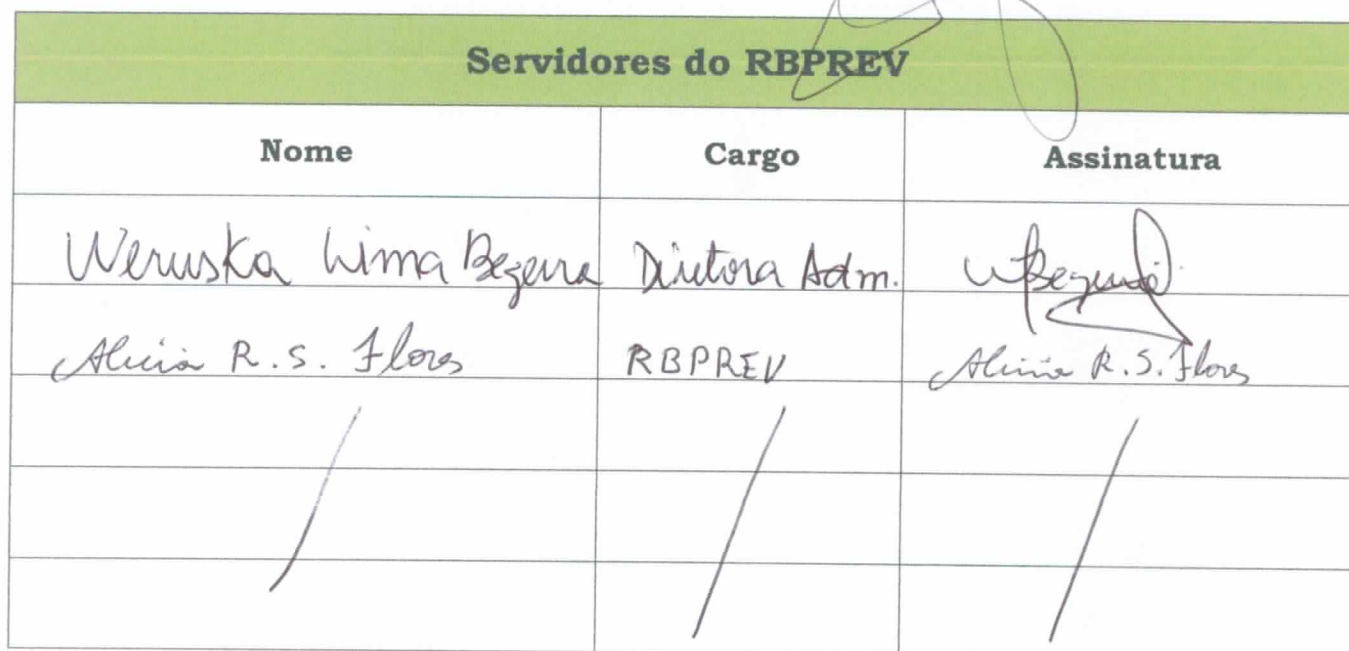 Servidores do RBPREV
Nome Cargo Assinatura
Weruska Lima Bezerra Diretora Adm. WBezerra
Alicia R. S. Flores RBPREV Alicia R. S. Flores